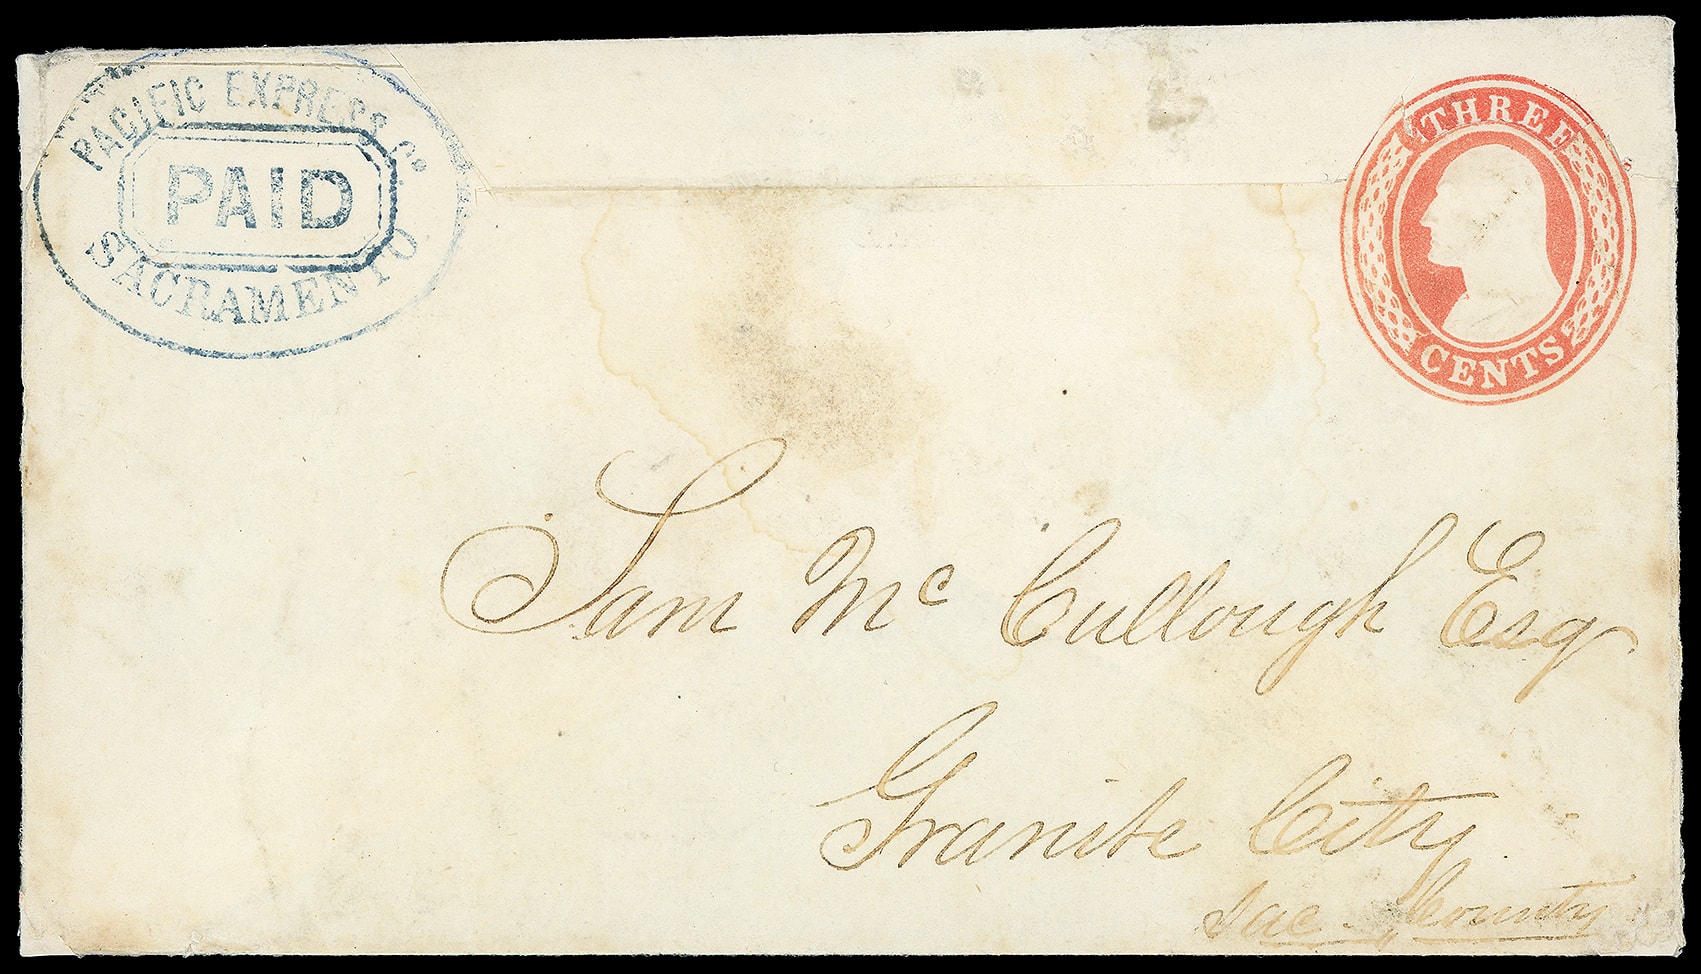 PACIFIC EXPRESS Co
PAID
SACRAMENTO
THREE
CENTS
Sam Mc Cullough Esq
Granite City
Sac. County